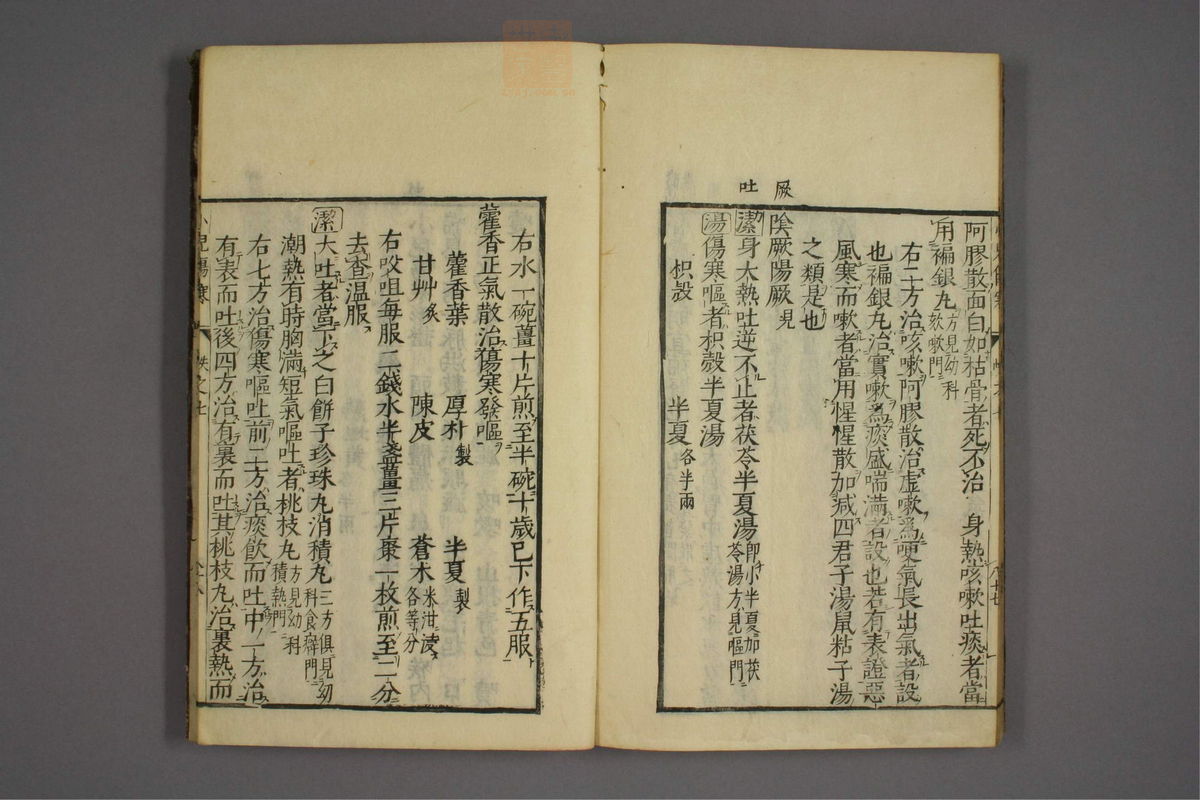 阿膠散面白如枯骨者死不治 身熱咳嗽吐痰者當
用褊銀丸方見幼科咳嗽門
右二方治咳嗽阿膠散治虛嗽爲哽氣長出氣者設
也褊銀丸治實嗽爲痰盛喘滿者設也若有表證惡
風寒而嗽者當用惺惺散加減四君子湯鼠粘子湯
之類是也
厥
陰厥陽厥見
吐
潔身大熱吐逆不止者茯苓半夏湯卽小半夏加茯苓湯方見嘔門
湯傷寒嘔者枳殼半夏湯
枳殼 半夏各半兩
右水一碗薑十片煎至半碗十歲已下作五服
藿香正氣散治傷寒發嘔
藿香葉 厚朴製 半夏製
甘艸炙 陳皮 蒼朮米泔浸各等分
右㕮咀每服二錢水半盞薑三片棗一枚煎至二分
去查温服
潔大吐者當下之白餅子珍珠丸消積丸三方俱見幼科食癖門
潮熱有時胸滿短氣嘔吐者桃枝丸方見幼科積熱門
右七方治傷寒嘔吐前二方治痰飲而吐中一方治
有表而吐後四方治有裏而吐其桃枝丸治裏熱而
小兒傷寒 帙之七